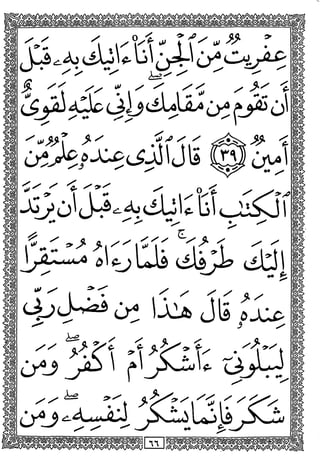 عِفْرِيتٌ مِّنَ ٱلْجِنِّ أَنَا۠ ءَاتِيكَ بِهِۦ قَبْلَ
أَن تَقُومَ مِن مَّقَامِكَ ۖ وَإِنِّى عَلَيْهِ لَقَوِىٌّ
أَمِينٌ ٣٩ قَالَ ٱلَّذِى عِندَهُۥ عِلْمٌ مِّنَ
ٱلْكِتَـٰبِ أَنَا۠ ءَاتِيكَ بِهِۦ قَبْلَ أَن يَرْتَدَّ
إِلَيْكَ طَرْفُكَ ۚ فَلَمَّا رَءَاهُ مُسْتَقِرًّا
عِندَهُۥ قَالَ هَـٰذَا مِن فَضْلِ رَبِّى
لِيَبْلُوَنِىٓ ءَأَشْكُرُ أَمْ أَكْفُرُ ۖ وَمَن
شَكَرَ فَإِنَّمَا يَشْكُرُ لِنَفْسِهِۦ ۖ وَمَن
٦٦